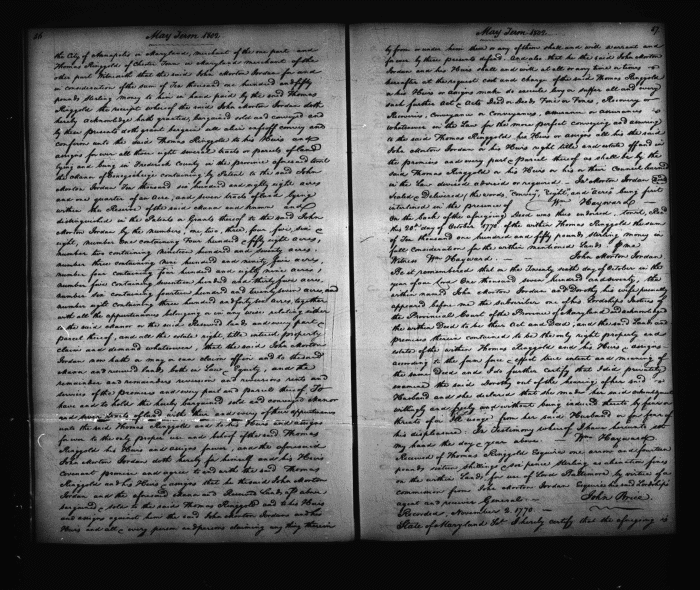 26
May Term 1802.
the City of Annapolis in Maryland, merchant of the one part and
Thomas Ringgold of Chester Town in Maryland merchant of the
other part Witnesseth that the said John Morton Jordan for and
in consideration of the sum of Ten thousand one hundred and fifty
pounds sterling money to him in hand paid by the said Thomas
Ringgold the receipt whereof the said John Morton Jordan doth
hereby acknowledge hath granted, bargained sold and conveyed and
by these presents doth grant bargain sell alien enfeoff convey and
confirm unto the said Thomas Ringgold his Heirs and
assigns forever all those eight several tracts or parcels of land
lying and being in Frederick County in the province aforesaid
the Manor of containing by Patent to the said John
Morton Jordan Ten thousand six hundred and eighty eight acres
and one quarter of an Acre, and seven tracts of land lying
within the Reserves of the said Manor and known and
distinguished in the Patents or Grants thereof to the said John
Morton Jordan by the numbers, one, two, three, four, five, six
eight, number One containing Four hundred & fifty eight acres,
number two containing nineteen hundred and seventy acres,
number three containing nine hundred and ninety five acres,
number four containing four hundred and eighty nine acres,
number five containing seventeen hundred and thirty four acres,
number six containing fourteen hundred and twenty seven acres and
number eight containing three hundred and forty six acres, together
with all the appurtenances belonging or in any wise relating either
to the said Manor or the said Reserved lands and every part &
parcel thereof, and all the estate right title interest property
claim and demand whatsoever, that the said John Morton
Jordan now hath or may or can claim of in and to the said
Manor and reserved lands both in Law & Equity, and the
remainder and remainders reversion and reversions rents and
services of the premises and every part and parcel thereof To
have and to hold the hereby bargained sold and conveyed Manor
and seven tracts of land with their and every of their appurtenances
unto the said Thomas Ringgold and to his Heirs and assigns
forever to the only proper use and behoof of the said Thomas
Ringgold his Heirs and assigns forever, and the aforesaid
John Morton Jordan doth hereby for himself and his Heirs
Covenant promise and agree to and with the said Thomas
Ringgold and his Heirs & assigns that he the said John Morton
Jordan and the aforesaid Manor and Reserved Lands as above
bargained & sold to the said Thomas Ringgold and his Heirs
and assigns against him the said John Morton Jordan and his
Heirs and all & every person and persons claiming any thing therein
27
May Term 1802
by from or under him them or any of them shall and will warrant and
forever by these presents defend. And also that he the said John Morton
Jordan and his Heirs shall and will at all or any time or times
hereafter at the request cost and charge of the said Thomas Ringgold
or his Heirs or assigns make do execute levy or suffer all and every
such further Act & Acts Deed or Deeds Fine or Fines, Recovery or
Recoveries, Conveyance or Conveyances, assurance or assurances
whatsoever in the Law for the more Perfect Conveying and assuring
to the said Thomas Ringgold his Heirs or assigns all his the said
John Morton Jordan or his Heirs right title and estate of and in
the premises and every part & parcel thereof as shall be by the
said Thomas Ringgold or his Heirs or his or their Council learned
in the Law devised advised or required. Jno Morton Jordan
Sealed & Delivered, the words, "convey," "eight," and acres being first
interlined in the presence of Wm Hayward
On the back of the aforegoing Deed was thus endorsed, to wit, Recd
this 26th day of October 1770 of the within Thomas Ringgold the sum
of Ten thousand one hundred and fifty pounds sterling money in
full Consideration for the within mentioned Lands by me
Witness Wm Hayward. John Morton Jordan
Be it remembered that on the Twenty sixth day of October in the
year of our Lord One thousand seven hundred and seventy, the
within named John Morton Jordan and Dorothy his wife personally
appeared before me the subscriber one of his Lordships Justices of
the Provincial Court of the Province of Maryland and acknowledged
the within Deed to be their Act and Deed, and the said Lands and
premises therein contained to be the only right property and
estate of the within Thomas Ringgold and his Heirs & assigns
according to the form force & effect true intent and meaning of
the same Deed and I do further certify that I did privately
examine the said Dorothy out of the hearing of her said
Husband and she declared that she made her said acknowledgment
willingly and freely and without being induced thereto by fear or
threats of or Ill usage from her said Husband or for fear of
his displeasure. In Testimony whereof I have hereunto set
my hand the day & year above. Wm Hayward
Received of Thomas Ringgold Esquire one and fourteen
pounds sixteen shillings & six pence sterling as alienation fine
on the within Lands, for use of Lord Baltimore, by virtue of a
commission from John Morton Jordan Esquire his said Lordships
agent and receiver General.
John Brice
Recorded, November 2. 1770.
State of Maryland Sst. I hereby certify that the aforegoing is